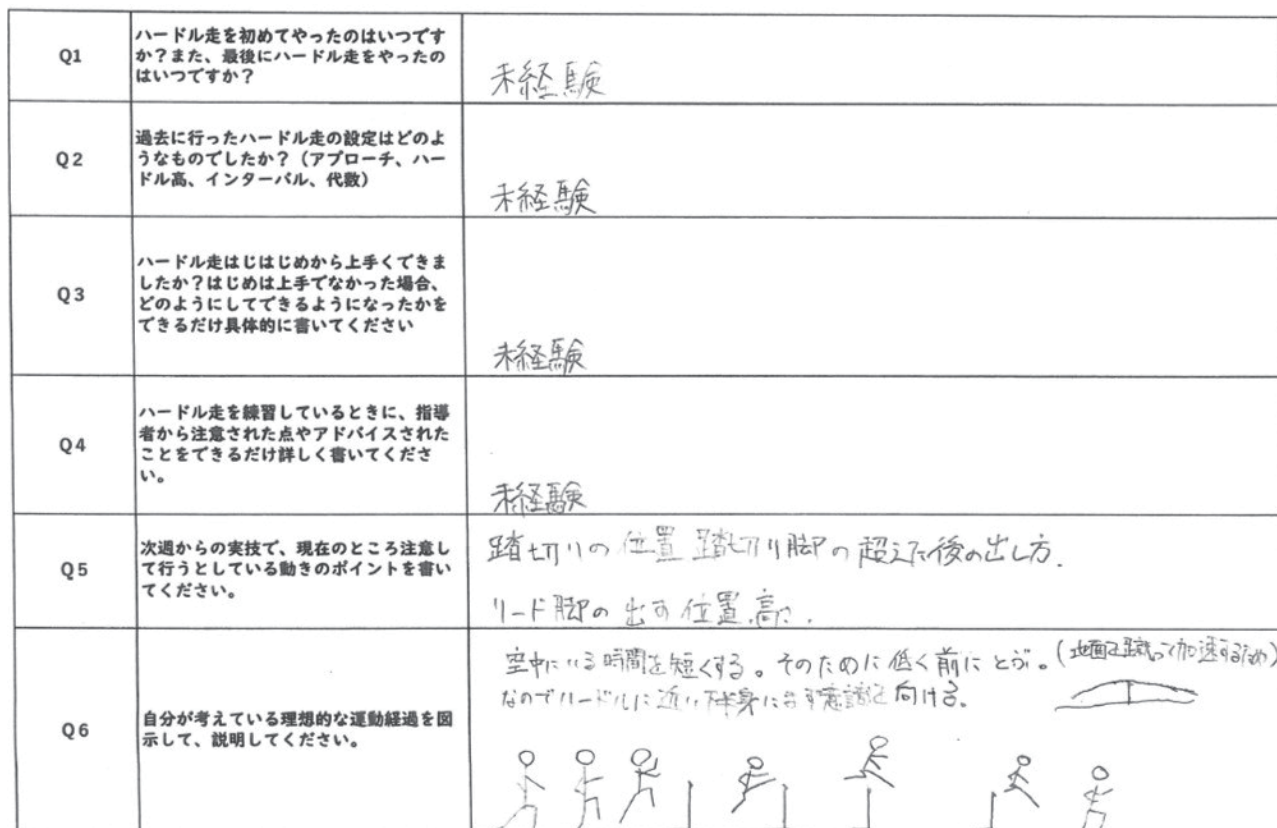 Q1
ハードル走を初めてやったのはいつです
か？また、最後にハードル走をやったの
はいつですか？
未経験
Q2
過去に行ったハードル走の設定はどのよ
うなものでしたか？（アプローチ、ハー
ドル高、インターバル、代数）
未経験
Q3
ハードル走はじはじめから上手くできま
したか？はじめは上手でなかった場合、
どのようにしてできるようになったかを
できるだけ具体的に書いてください
未経験
Q4
ハードル走を練習しているときに、指導
者から注意された点やアドバイスされた
ことをできるだけ詳しく書いてくださ
い。
未経験
Q5
次週からの実技で、現在のところ注意し
て行うとしている動きのポイントを書い
てください。
踏切りの位置 踏切り脚の超えた後の出し方.
リード脚の出す位置,高さ.
Q6
自分が考えている理想的な運動経過を図
示して、説明してください。
空中にいる時間を短くする。そのために低く前にとぶ。(地面を蹴って加速するため)
なのでハードルに近い下半身にまず意識を向ける。